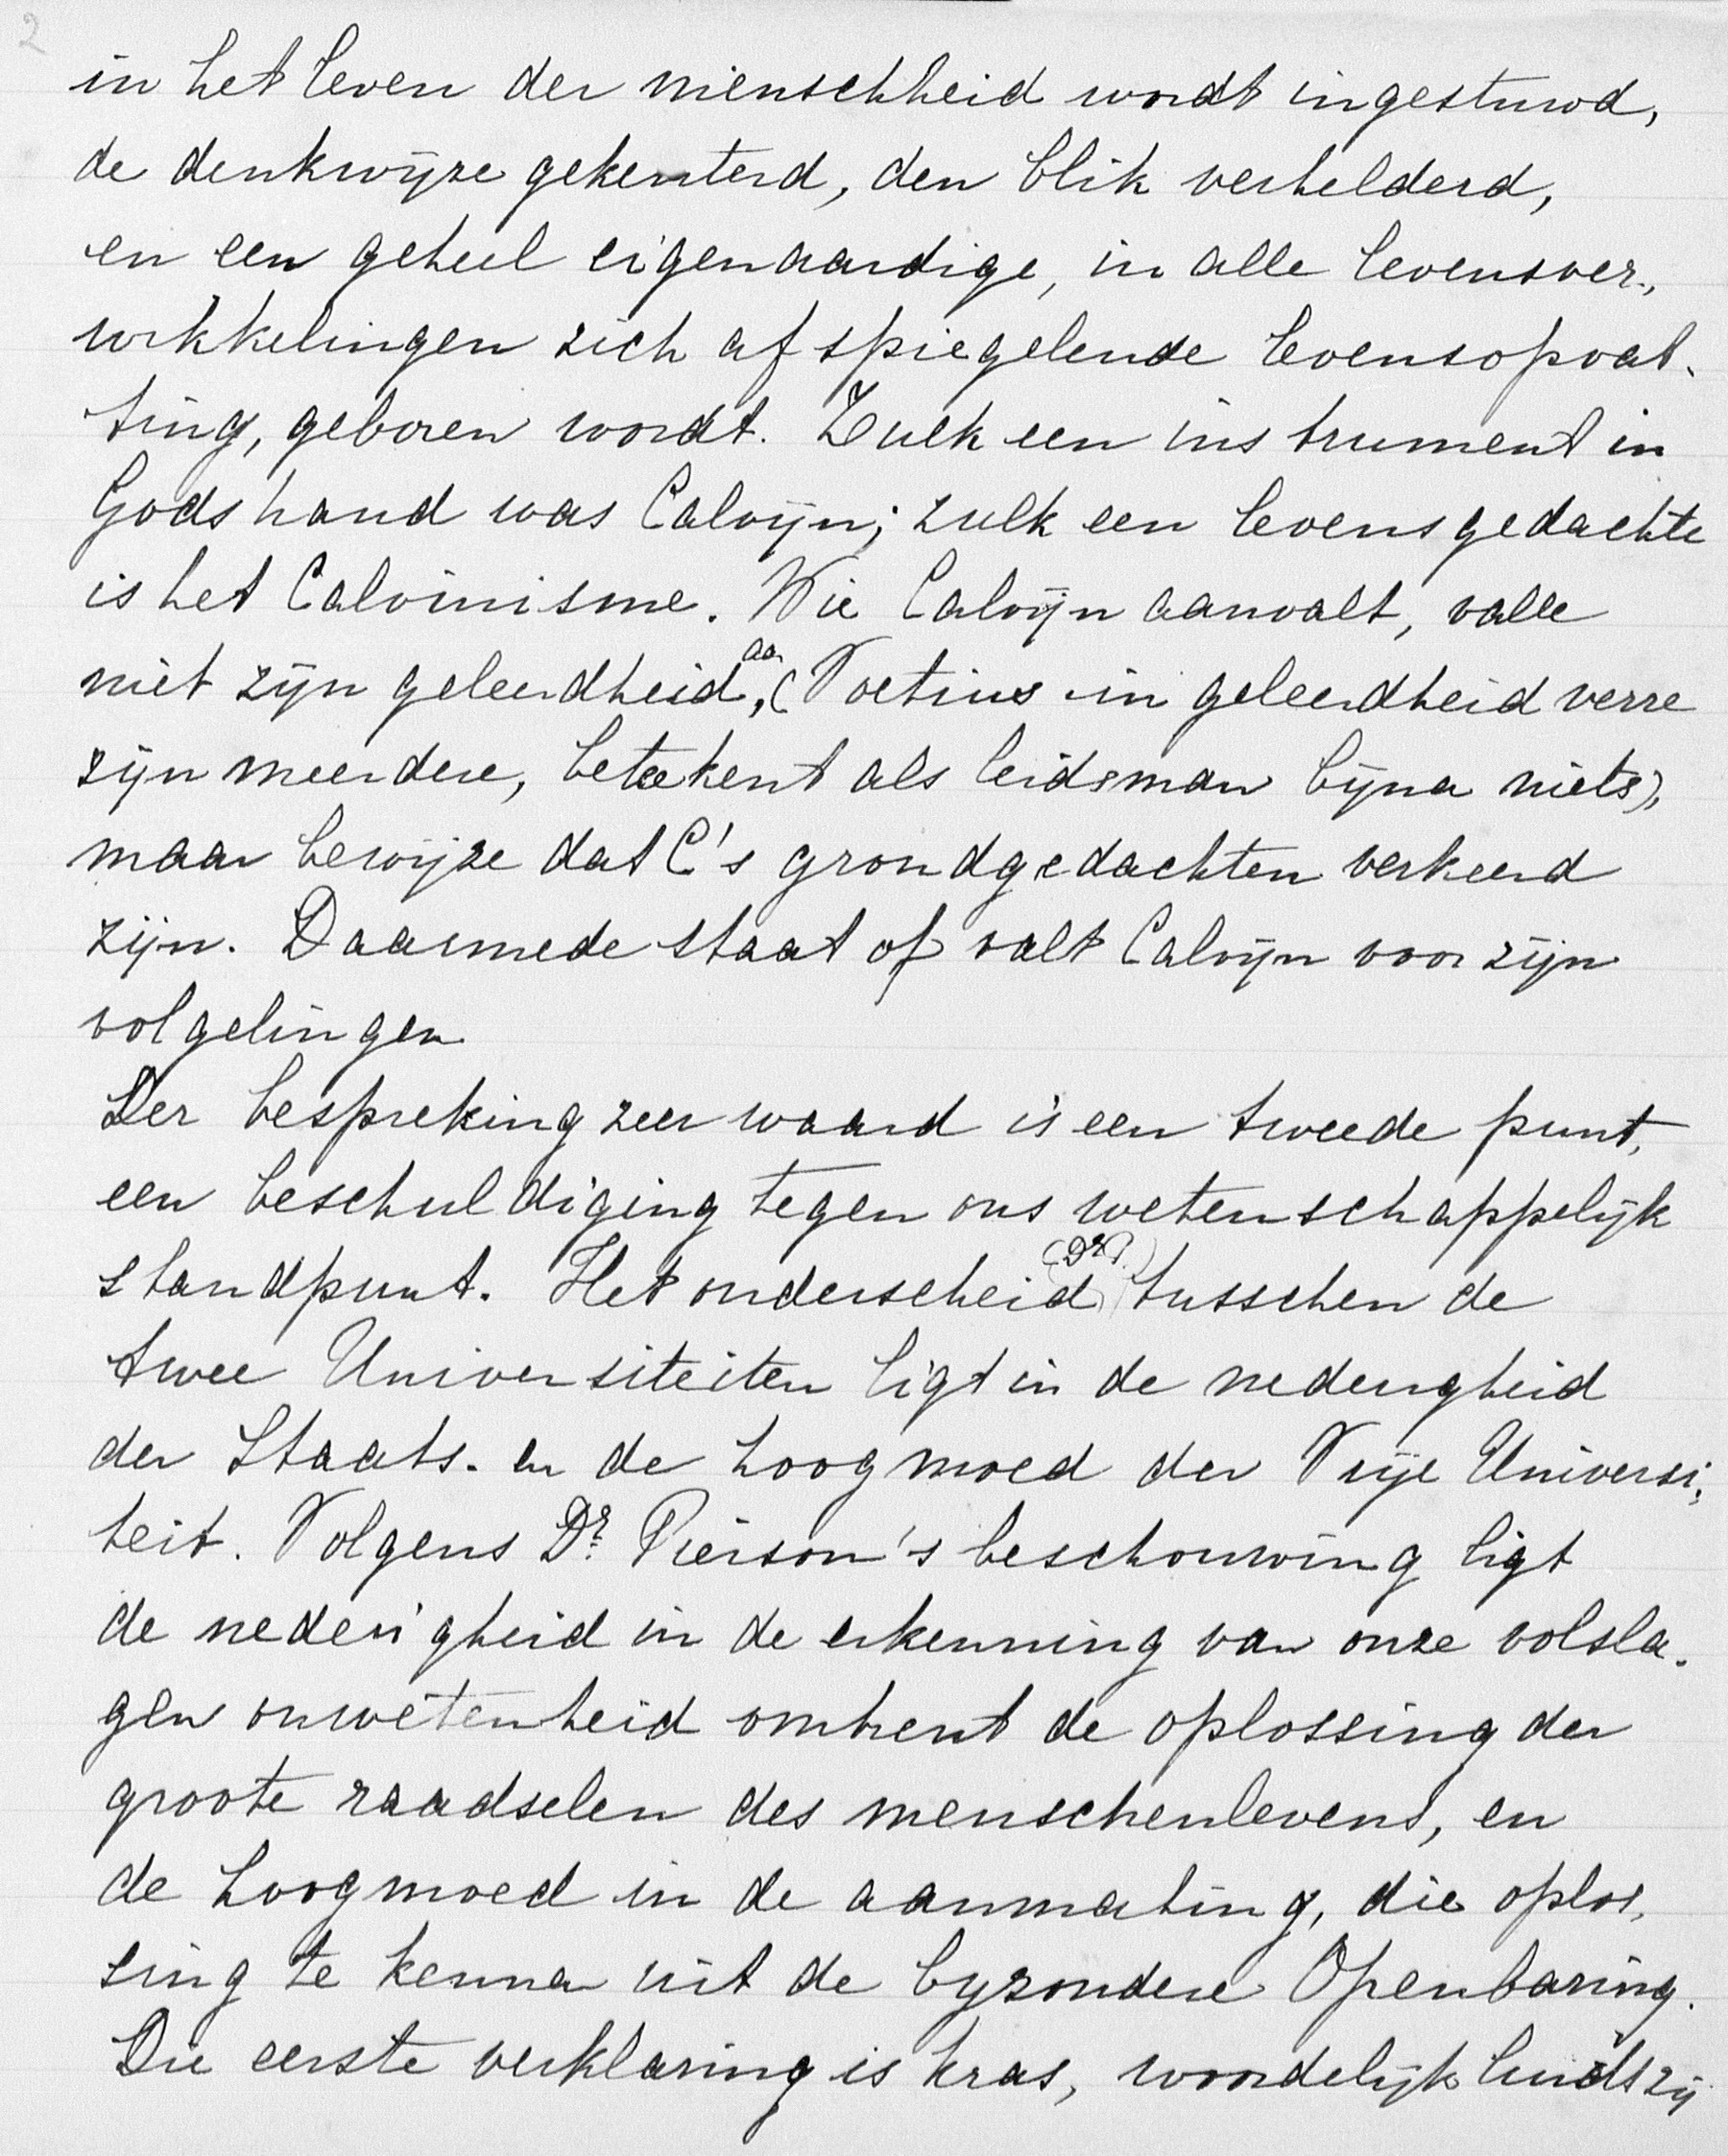 2
in het leven der menschheid wordt ingestuwd,
de denkwijze gekenterd, den blik verhelderd,
en een geheel eigenaardige, in alle levensver-
wikkelingen zich afspiegelende levensopvat-
ting, geboren wordt. Zulk een instrument in
Gods hand was Calvijn; zulk een levensgedachte
is het Calvinisme. Wie Calvijn aanvalt, valle
niet zijn geleerdheid aan, (Voetius in geleerdheid verre
zijn meerdere, beteekent als leidsman bijna niets),
maar bewijze dat C's grondgedachten verkeerd
zijn. Daarmede staat of valt Calvijn voor zijn
volgelingen.
Der bespreking zeer waard is een tweede punt,
een beschuldiging tegen ons wetenschappelijk
standpunt. Het onderscheid (Dr P.) tusschen de
twee Universiteiten ligt in de nederigheid
der Staats- en de hoogmoed der Vrije Universi-
teit. Volgens Dr. Pierson's beschouwing ligt
de nederigheid in de erkenning van onze volsla-
gen onwetenheid omtrent de oplossing der
groote raadselen des menschenlevens, en
de hoogmoed in de aanmating, die oplos-
sing te kennen uit de byzondere Openbaring.
Die eerste verklaring is kras, woordelijk luidt zij